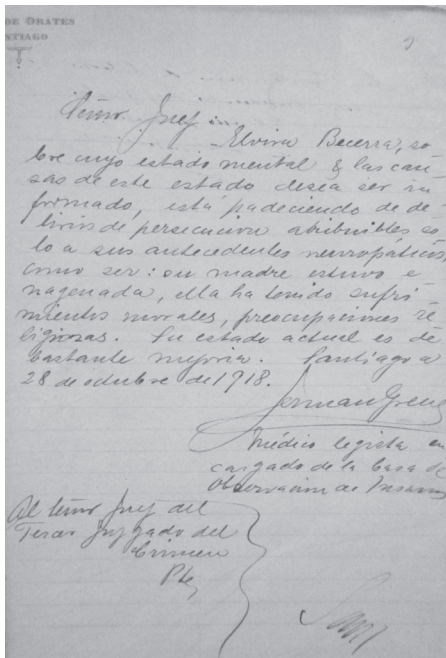 DE ORATES
NTIAGO
Señor Juez:
Elvira Becerra, so
bre cuyo estado mental & las cau-
sas de este estado desea ser in
formado, está padeciendo de de-
lirio de persecucion atribuibles so
lo a sus antecedentes neuropáticos,
como ser: su madre estuvo e
nagenada, ella ha tenido sufri
mientos morales, preocupaciones re
ligiosas. Su estado actual es de
bastante mejoria. Santiago a
28 de octubre de 1918.
German Greve
Médico legista en
cargado de la Casa de
Observacion de Insanos
Al señor Juez del
Tercer Juzgado del
Crimen
Pte